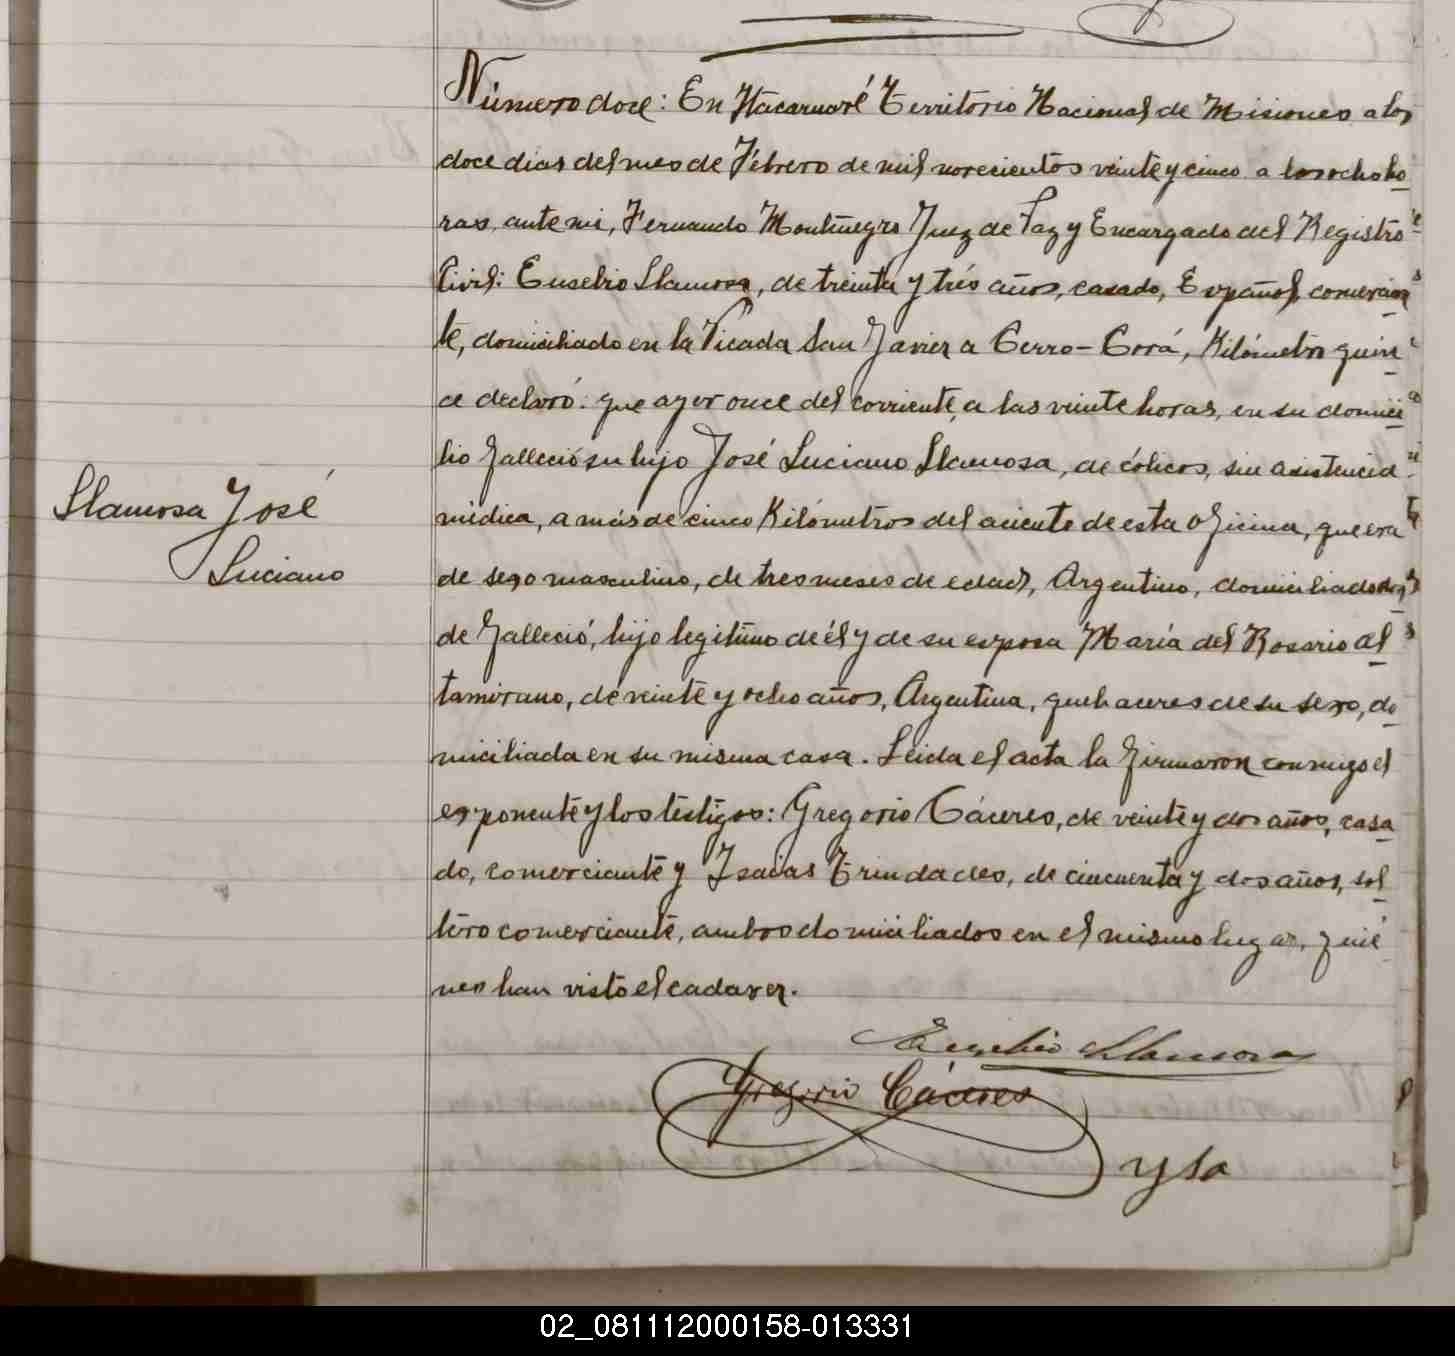 Número doce: En Itacaruaré Territorio Nacional de Misiones a los
doce dias del mes de Febrero de mil novecientos veinte y cinco a las ocho ho
ras, ante mi, Fernando Montenegro Juez de Paz y Encargado del Registro
Civil: Eusebio Llamosa, de treinta y trés años, casado, Español, comercian
te, domiciliado en la Picada San Javier a Cerro-Corá, Kilómetro quin
ce declaró: que ayer once del corriente, a las veinte horas, en su domici
lio falleció su hijo José Luciano Llamosa, de cólicos, sin asistencia
médica, a más de cinco Kilómetros del aciento de esta oficina, que era
Llamosa José
Luciano
de sexo masculino, de tres meses de edad, Argentino, domiciliado don
de falleció, hijo legitimo de él y de su esposa María del Rosario Al
tamirano, de veinte y ocho años, Argentina, quehaceres de su sexo, do
miciliada en su misma casa. Leida el acta la firmaron conmigo el
exponente y los testigos: Gregorio Cáceres, de veinte y dos años, casa
do, comerciante y Isaias Trindades, de cincuenta y dos años, sol
tero comerciante, ambos domiciliados en el mismo lugar, quié
nes han visto el cadaver.
Eusebio Llamosa
Gregorio Cáceres
02_081112000158-013331